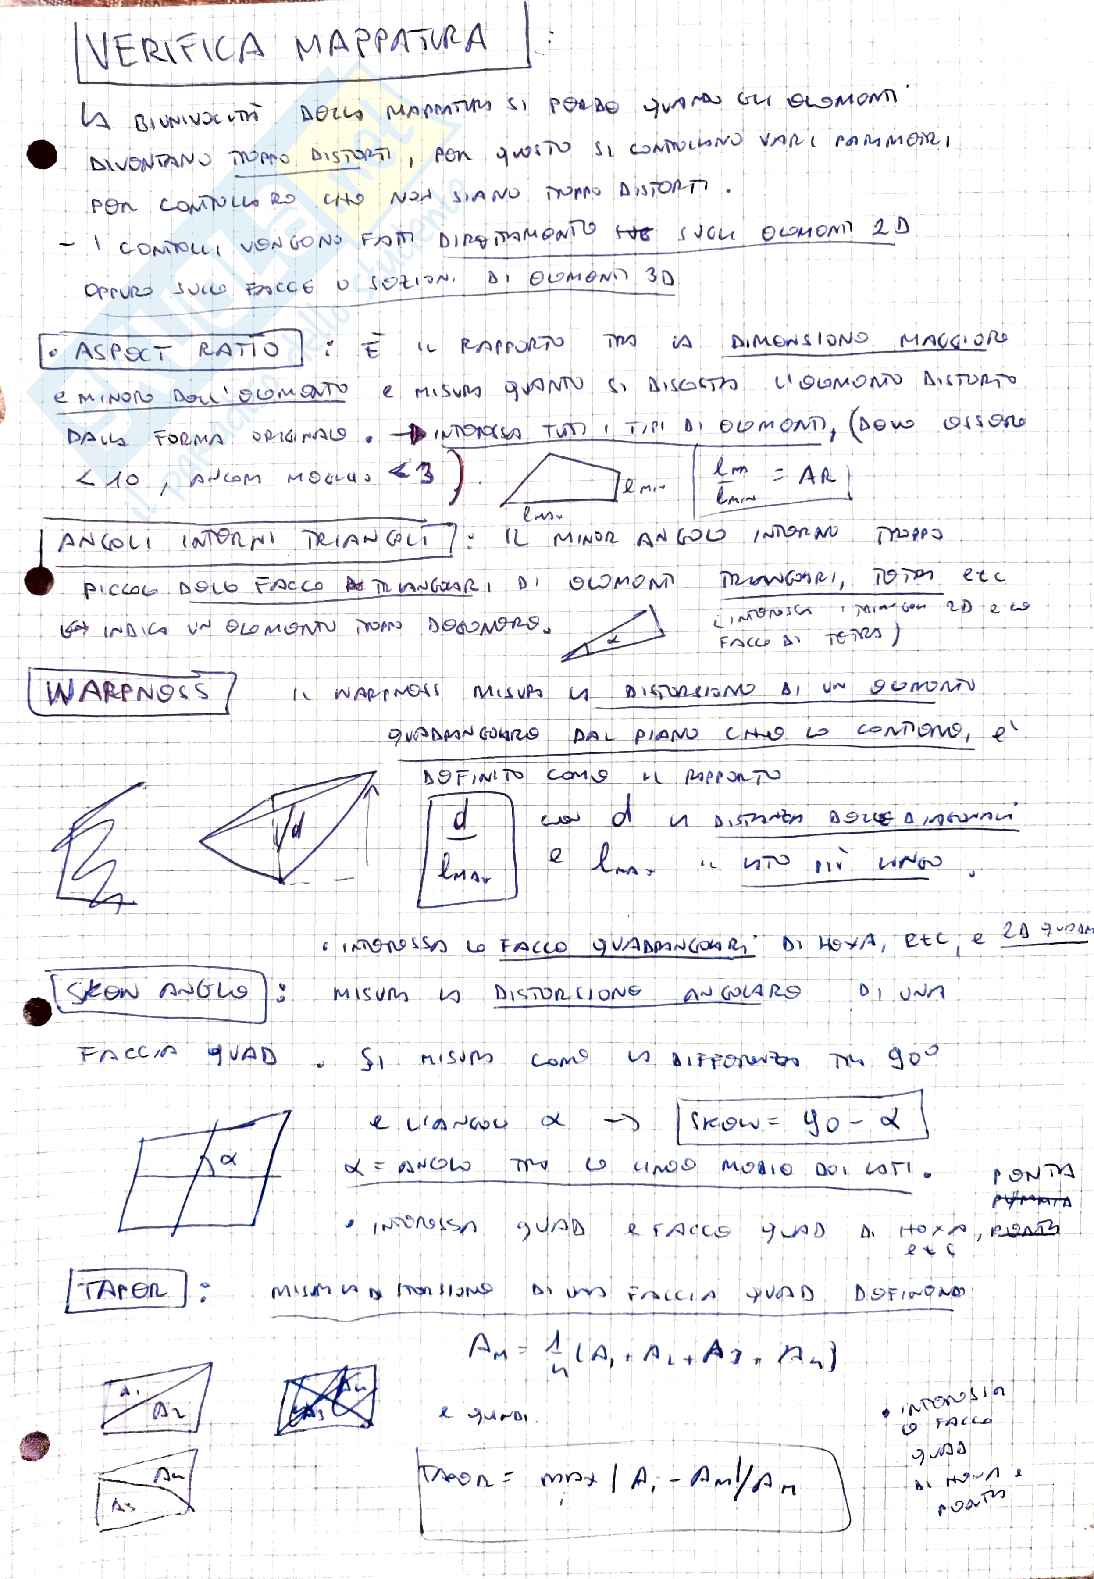 VERIFICA MAPPATURA :
LA BIUNIVOCITÀ DELLA MAPPATURA SI PERDE QUANDO GLI ELEMENTI
DIVENTANO TROPPO DISTORTI, PER QUESTO SI CONTROLLANO VARI PARAMETRI
PER CONTROLLARE CHE NON SIANO TROPPO DISTORTI.
- I CONTROLLI VENGONO FATTI DIRETTAMENTE SUGLI ELEMENTI 2D
OPPURE SULLE FACCE O SEZIONI DI ELEMENTI 3D
• ASPECT RATIO : È IL RAPPORTO TRA LA DIMENSIONE MAGGIORE
E MINORE DELL'ELEMENTO E MISURA QUANTO SI DISCOSTA L'ELEMENTO DISTORTO
DALLA FORMA ORIGINALE. → INTERESSA TUTTI I TIPI DI ELEMENTI, (DEVE ESSERE
< 10, ANCORA MEGLIO < 3). lmax lmin lM/lmin = AR
ANGOLI INTERNI TRIANGOLI : IL MINOR ANGOLO INTERNO TROPPO
PICCOLO DELLE FACCE TRIANGOLARI DI ELEMENTI TRIANGOLARI, TETRA etc
INDICA UN ELEMENTO TROPPO DEGENERE. α (INTERESSA I TRIANGOLI 2D E LE
FACCE DI TETRA)
WARPNESS IL WARPNESS MISURA LA DISTORSIONE DI UN ELEMENTO
QUADRANGOLARE DAL PIANO CHE LO CONTIENE, E'
DEFINITO COME IL RAPPORTO
d d/lMAX CON d LA DISTANZA DELLE DIAGONALI
E lMAX IL LATO PIÙ LUNGO.
• INTERESSA LE FACCE QUADRANGOLARI DI HEXA, etc, E 2D QUADR
SKEW ANGLE : MISURA LA DISTORSIONE ANGOLARE DI UNA
FACCIA QUAD. SI MISURA COME LA DIFFERENZA TRA 90°
E L'ANGOLO α → SKEW = 90 - α
α α = ANGOLO TRA LE LINEE MEDIE DEI LATI.
• INTERESSA QUAD E FACCE QUAD DI HEXA, etc PENTA
TAPER : MISURA LA DISTORSIONE DI UNA FACCIA QUAD DEFINENDO
AM = 1/4 (A1 + A2 + A3 + A4)
A1 A2 A4 A3 E QUINDI.
A4 A3 TAPER = max i |Ai - AM|/AM
• INTERESSA
LE FACCE
QUAD
DI HEXA E
PENTA